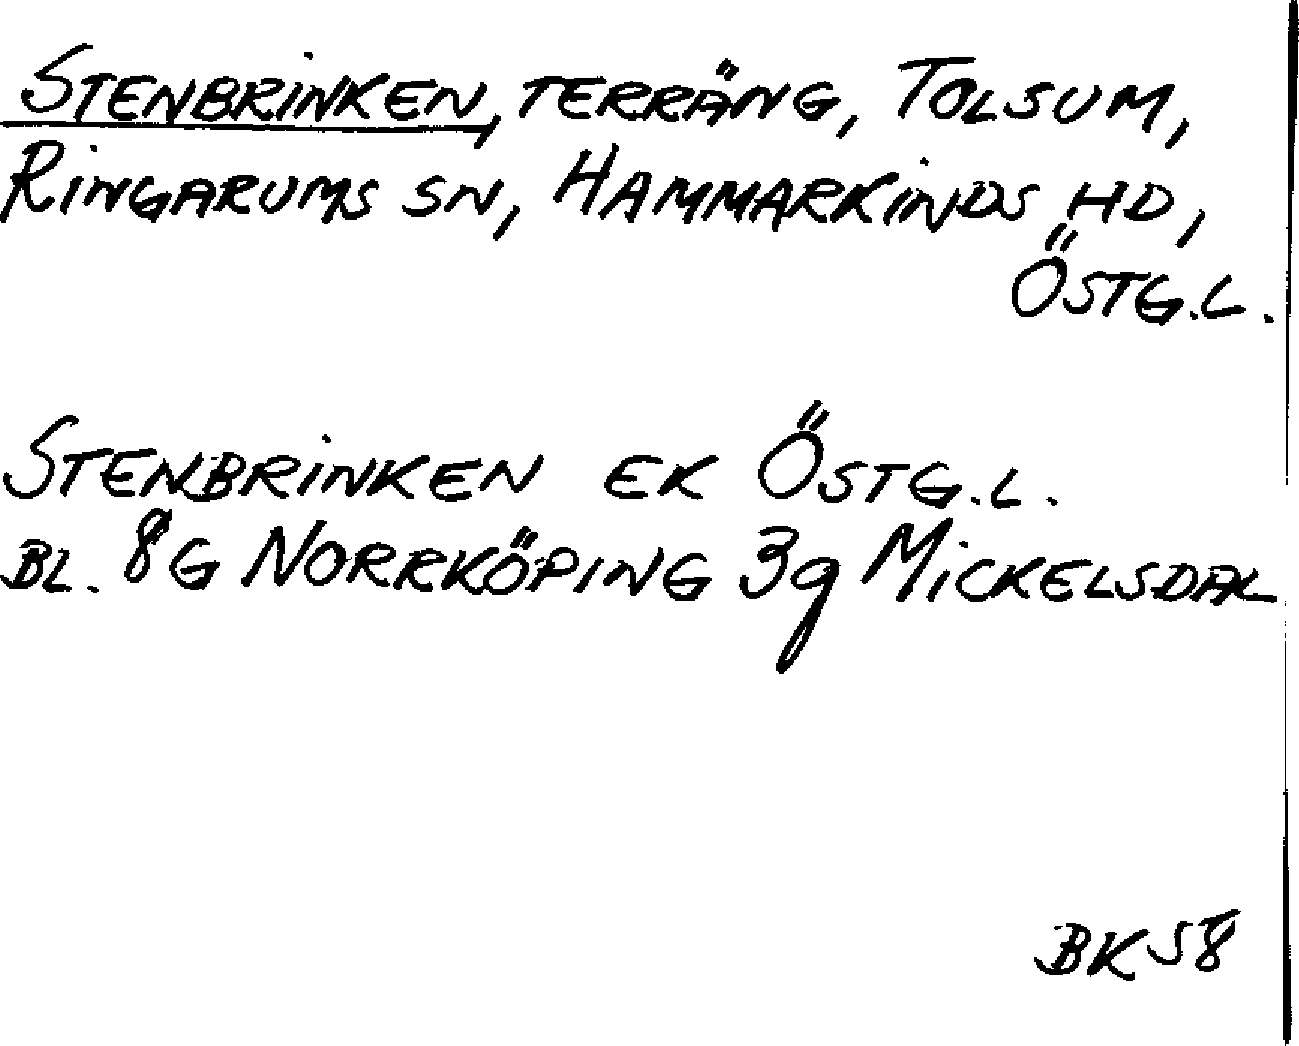 STENBRINKEN, TERRÄNG, TOLSUM,
RINGARUMS SN, HAMMARKINDS HD,
ÖSTG.L.
STENBRINKEN EK ÖSTG.L.
BL. 8G NORRKÖPING 3g MICKELSDAL
BK 58